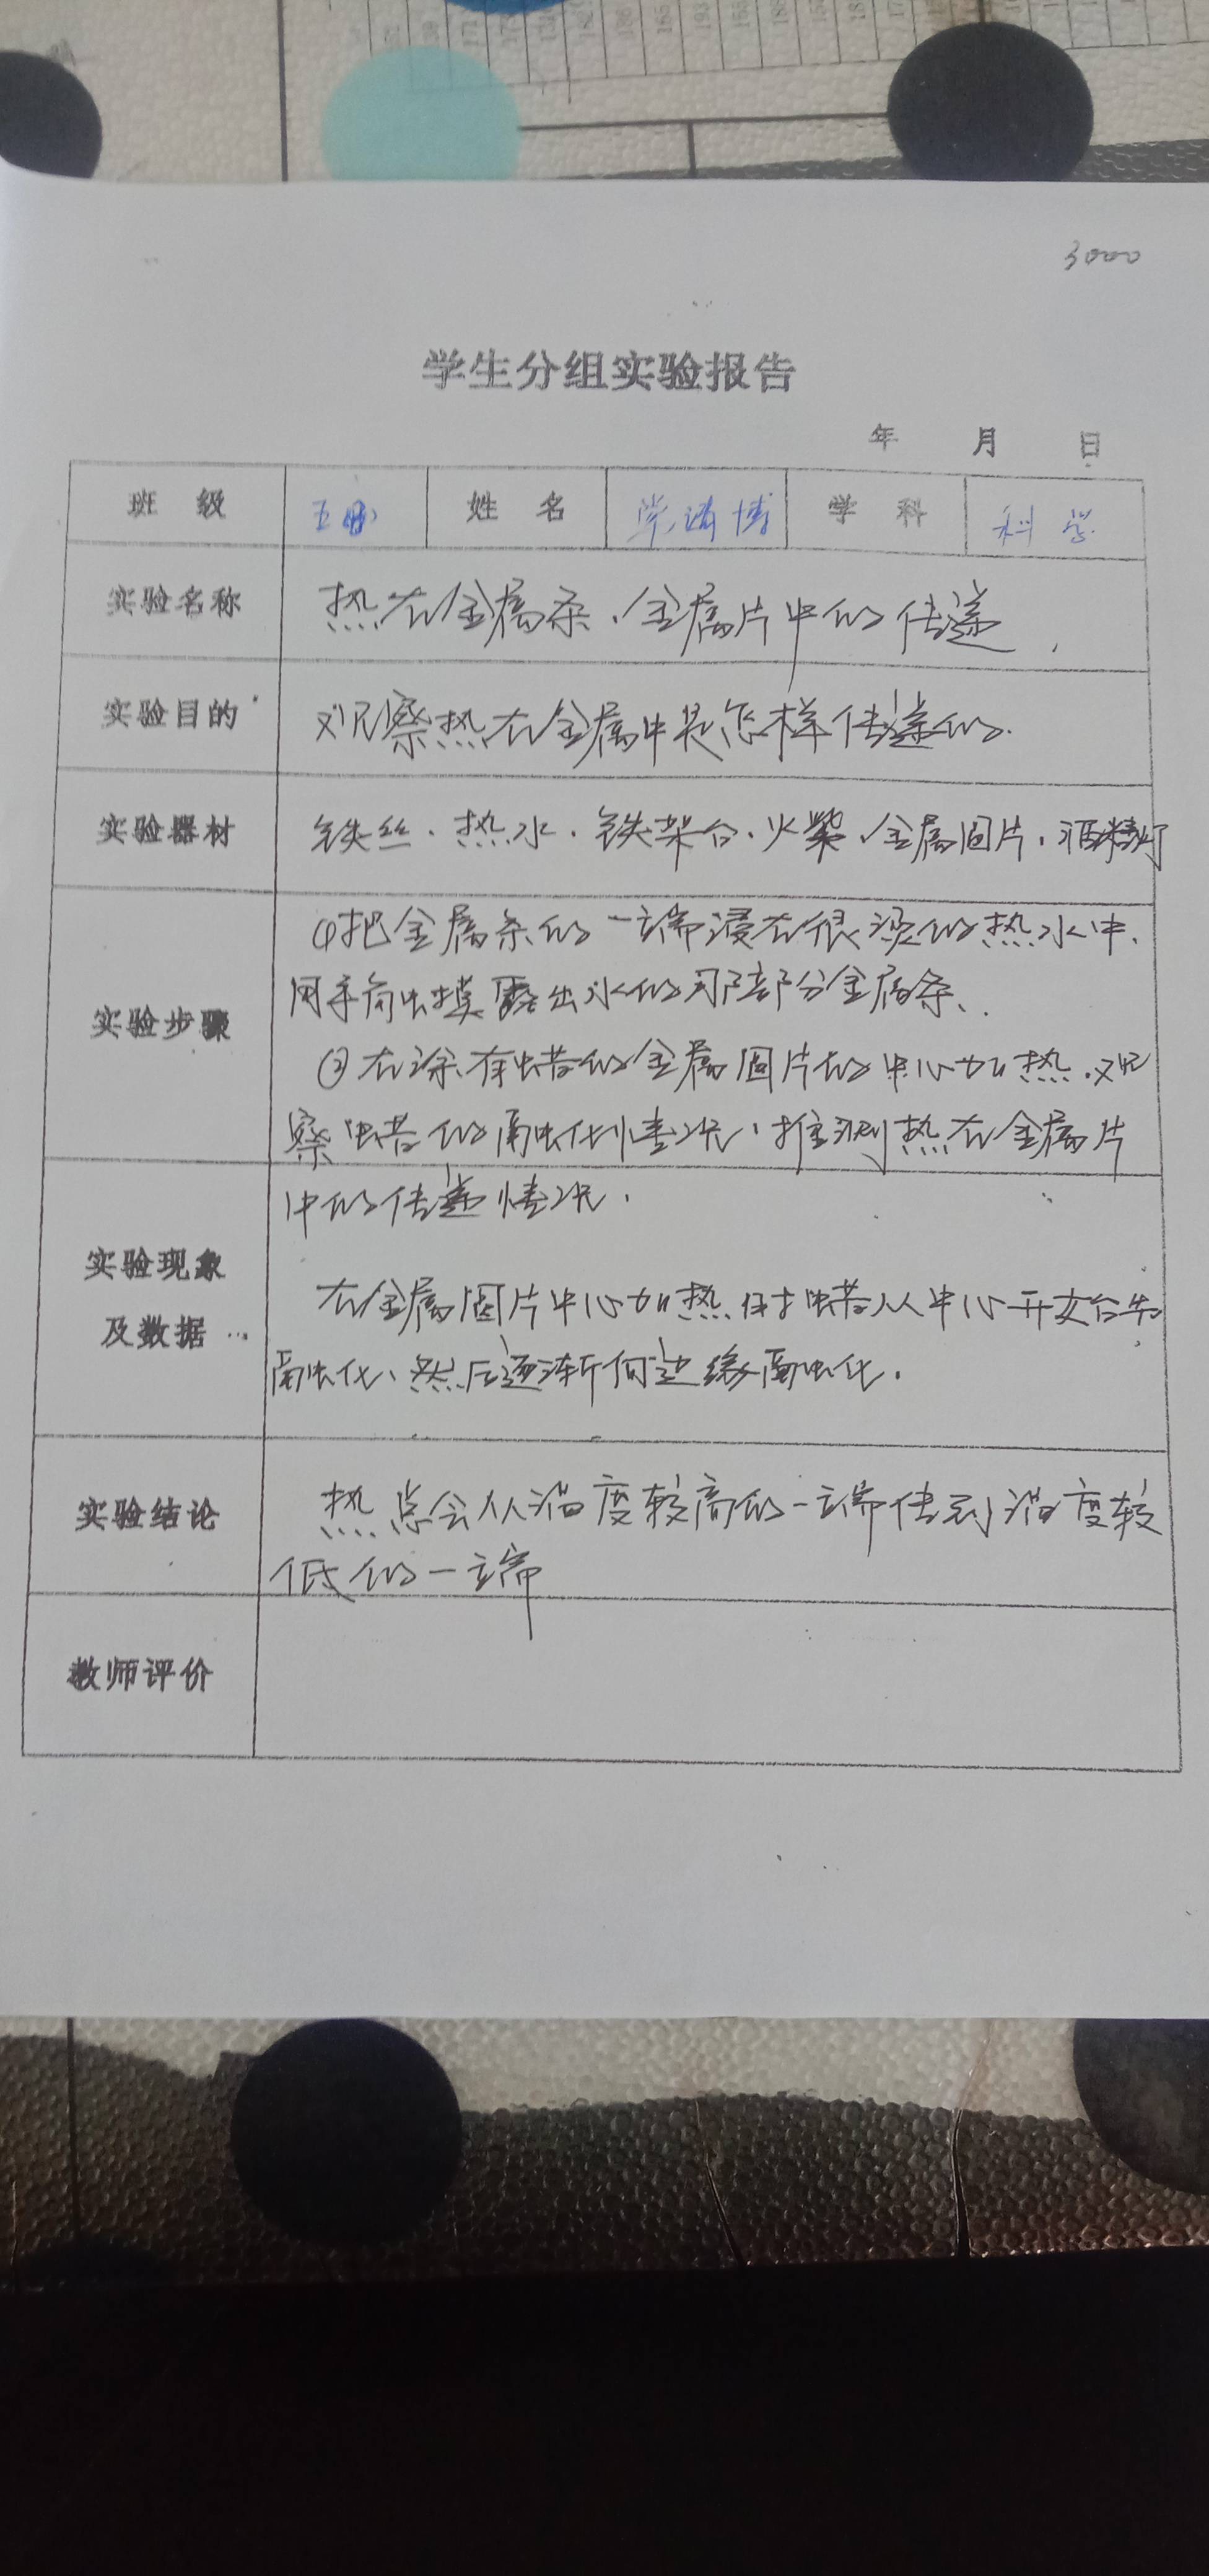 3000
学生分组实验报告
年 月 日
班 级 五 姓 名 博 学 科 科学
实验名称 热在金属条、金属片中的传递.
实验目的 观察热在金属中是怎样传递的.
实验器材 铁丝、热水、铁架台、火柴、金属圆片、酒精灯
实验步骤
①把金属条的一端浸在很烫的热水中、
用手触摸露出水的那部分金属条、
②在涂有蜡的金属圆片的中心加热、观
察蜡的融化情况、推测热在金属片
中的传递情况.
实验现象
及数据
在金属圆片中心加热、蜡从中心开始
融化、然后逐渐向边缘融化.
实验结论
热总会从温度较高的一端传到温度较
低的一端
教师评价